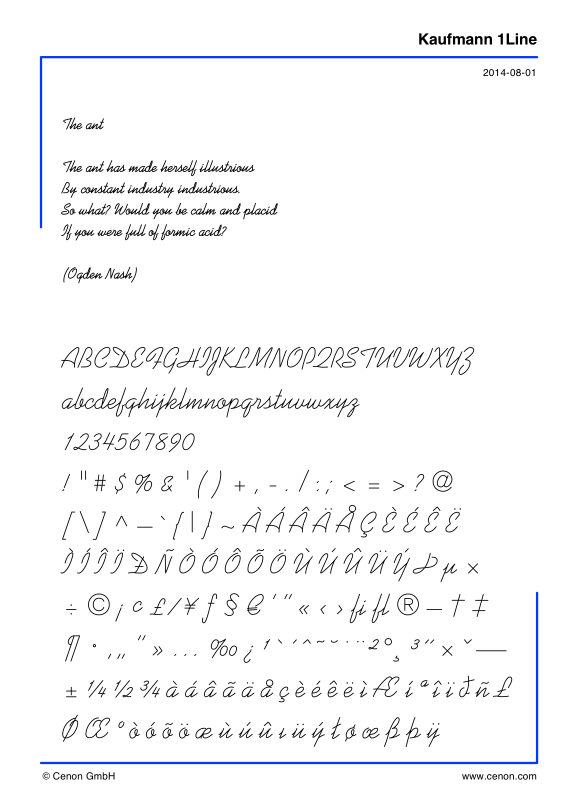 Kaufmann 1Line
2014-08-01
The ant
The ant has made herself illustrious
By constant industry industrious.
So what? Would you be calm and placid
If you were full of formic acid?
(Ogden Nash)
ABCDEFGHIJKLMNOPQRSTUVWXYZ
abcdefghijklmnopqrstuvwxyz
1234567890
! " # $ % & ' ( ) + , - . / : ; < = > ? @
[ \ ] ^ — ` { | } ~ À Á Â Ä Å Ç È É Ê Ë
Ì Í Î Ï Ð Ñ Ò Ó Ô Õ Ö Ù Ú Û Ü Ý Þ µ ×
÷ © ¡ ¢ £ / ¥ ƒ § € ' " « ‹ › fi fl ® – † ‡
¶ · ‚ „ ” » … ‰ ¿ ¹ ` ´ ^ ~ ¯ ˘ ˙ ¨ ² ° ¸ ³ ˝ × ˇ —
± ¼ ½ ¾ à á â ã ä å ç è é ê ë ì Æ í ª î ï ð ñ Ł
Ø Œ º ò ó õ ö æ ù ú û ı ü ý ł ø œ ß þ ÿ
© Cenon GmbH
www.cenon.com